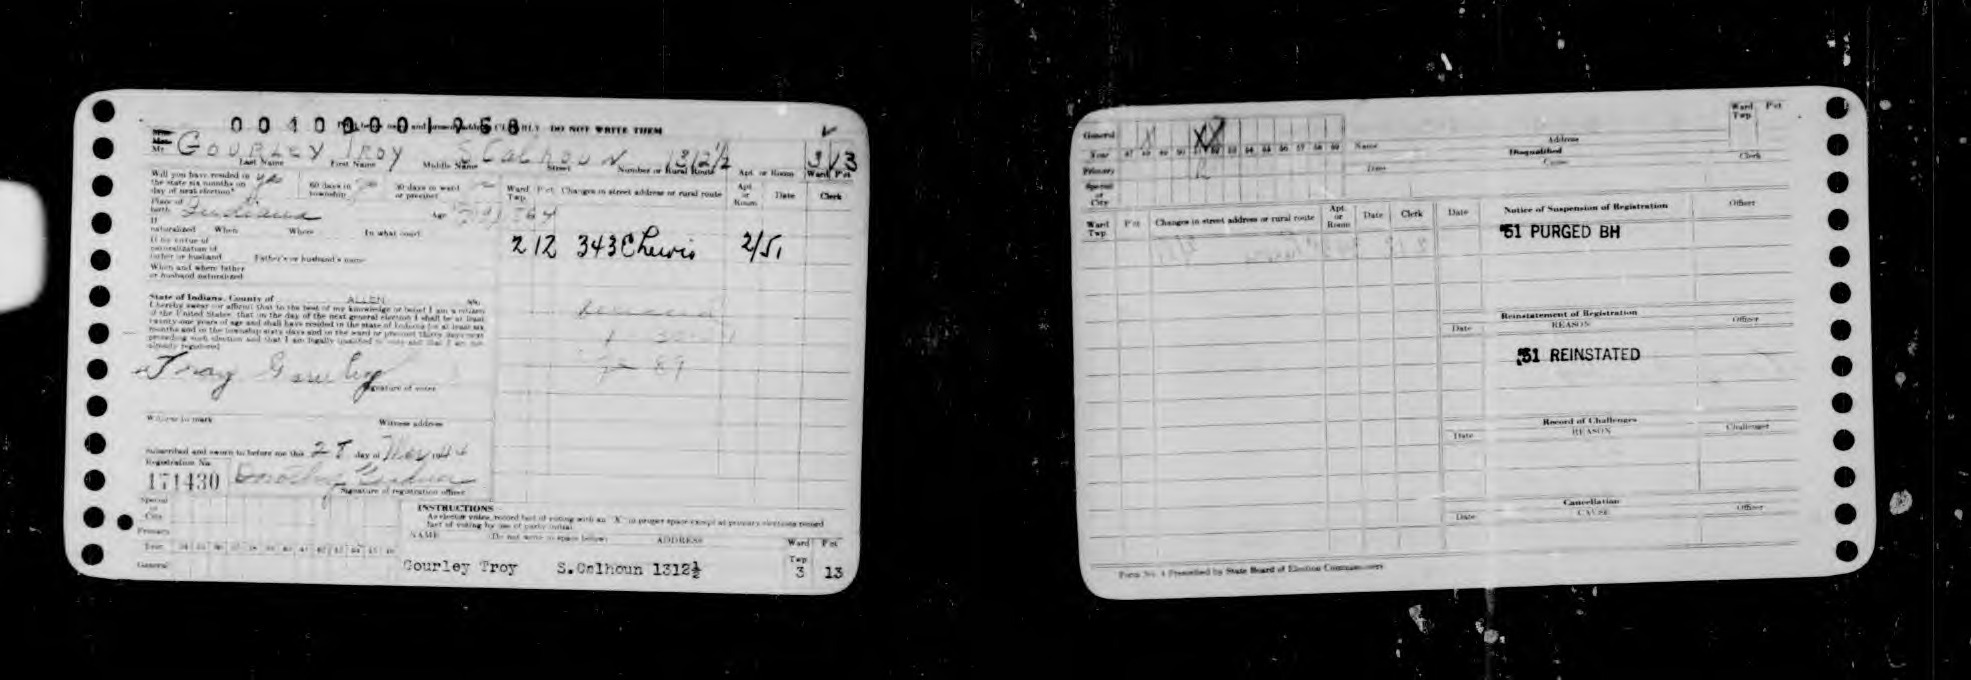 0 0 4 0 0 0 0 1 9 6 8 CLEARLY DO NOT WRITE THEM
Mr. GOURLEY TROY S CALHOUN 1312½ 3 13
Last Name First Name Middle Name Street Number or Rural Route Apt. or Room Ward Pct
Will you have resided in
the state six months on yes 60 days in 30 days in ward
day of next election? township or precinct
Ward Twp. Pct Changes in street address or rural route Apt. or Room Date Clerk
Place of birth Indiana Age
If naturalized When Where In what court
2 12 343 E Lewis 2/51
If by virtue of
naturalization of
father or husband Father's or husband's name
When and where father
or husband naturalized
State of Indiana, County of ALLEN ss:
I hereby swear (or affirm) that to the best of my knowledge or belief I am a citizen
of the United States, that on the day of the next general election I shall be at least
twenty-one years of age and shall have resided in the state of Indiana for at least six
months and in the township sixty days and in the ward or precinct thirty days next
preceding such election and that I am legally qualified to vote and that I am not
already registered.
Troy Gourley
Signature of voter
Witness to mark Witness address
Subscribed and sworn to before me this 28 day of
Registration No.
171430 Dorothy
Signature of registration officer
Special or City
Primary
Year
General
INSTRUCTIONS
As elector votes, record fact of voting with an "X" in proper space except at primary elections record
fact of voting by use of party initial.
NAME (Do not write in space below) ADDRESS Ward Twp Pct
Gourley Troy S.Calhoun 1312½ 3 13
General X X X
Year 47 48 49 50 51 52 53 54 55 56 57 58 59 Name Address Ward Twp. Pct
Primary
Disqualified
Date Cause Clerk
Special or City
Ward Twp. Pct Changes in street address or rural route Apt. or Room Date Clerk
Date Notice of Suspension of Registration Officer
'51 PURGED BH
Reinstatement of Registration
Date REASON Officer
'51 REINSTATED
Record of Challenges
Date REASON Challenger
Cancellation
Date CAUSE Officer
Form No. 4 Prescribed by State Board of Election Commissioners